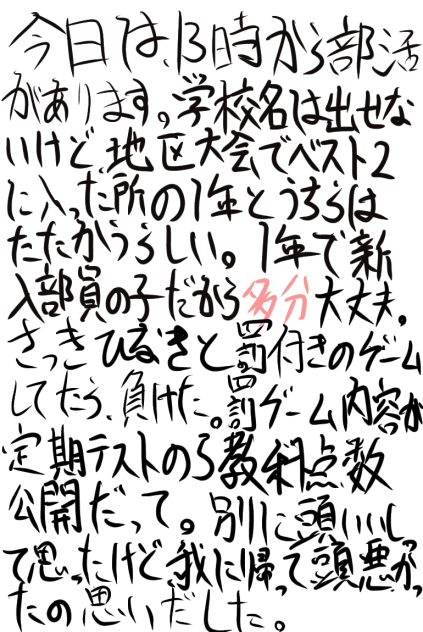 今日は、13時から部活
があります。学校名は出せな
いけど、地区大会でベスト2
に入った所の1年とうちらは
たたかうらしい。1年で新
入部員の子だから多分大丈夫。
さっきひなきと罰付きのゲーム
してたら、負けた。罰ゲーム内容が
定期テストの5教科点数
公開だって。別に頭いいし
って思ったけど、我に帰って頭悪かっ
たの思いだした。